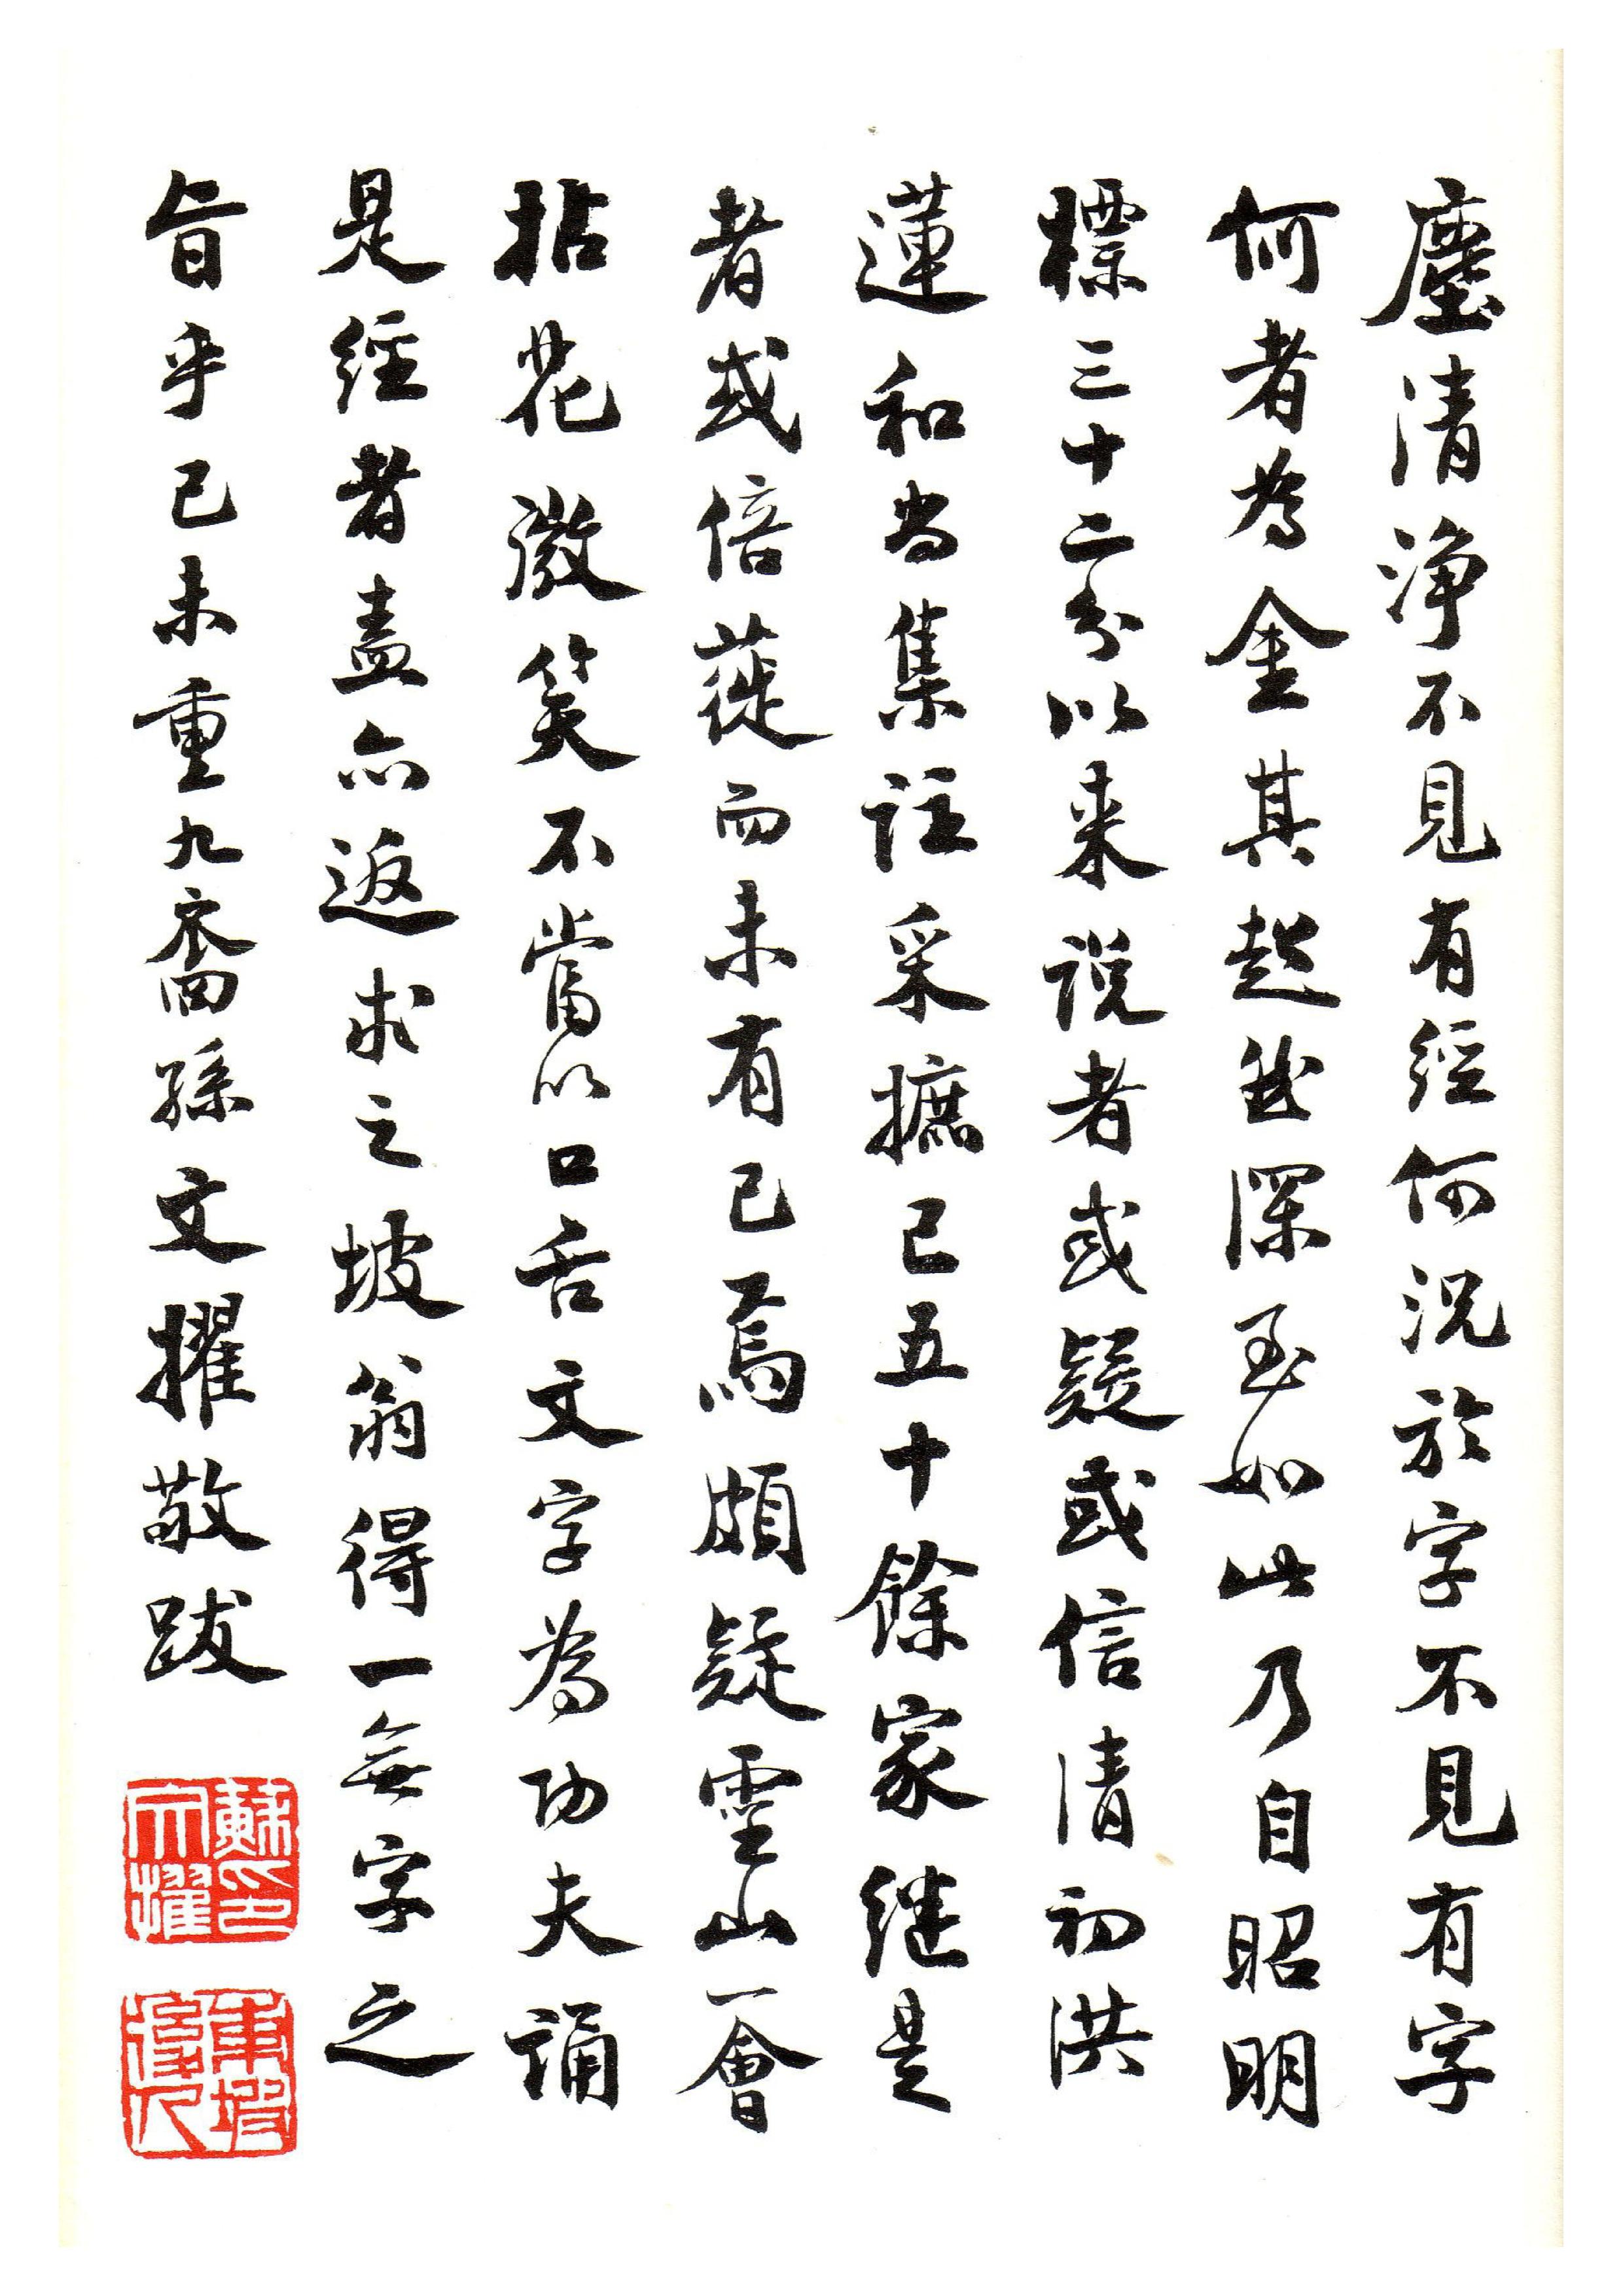 塵清淨不見有經何況於字不見有字
何者為金其超然深至如此乃自昭明
標三十二分以来説者或疑或信清初洪
蓮和尚集註采摭已五十餘家继是
者或倍蓰而未有已焉頗疑靈山一會
拈花微笑不當以口舌文字為功夫誦
是經者盍亦返求之坡翁得一無字之
旨乎己未重九裔孫文擢敬跋
蘇文擢印
東坡後人